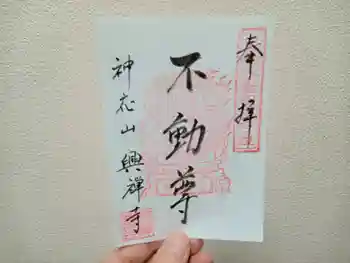 奉拝
不動尊
神応山興禅寺